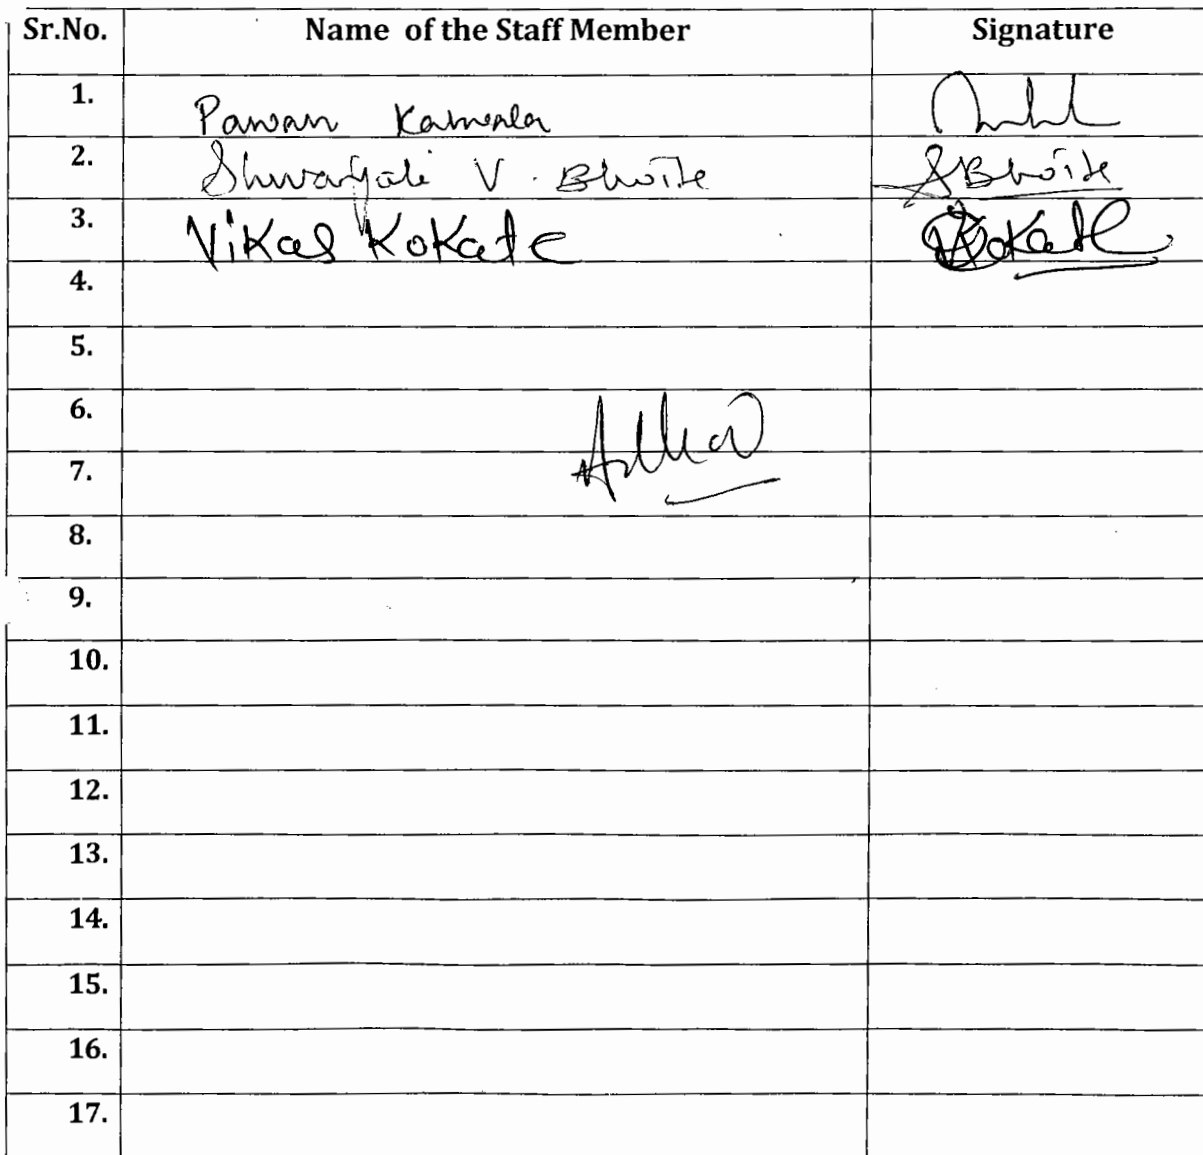 Sr.No. Name of the Staff Member Signature
1. Pawan
2. V. Bhoite SBhoite
3. Vikas Kokate Kokate
4.
5.
6.
7.
8.
9.
10.
11.
12.
13.
14.
15.
16.
17.